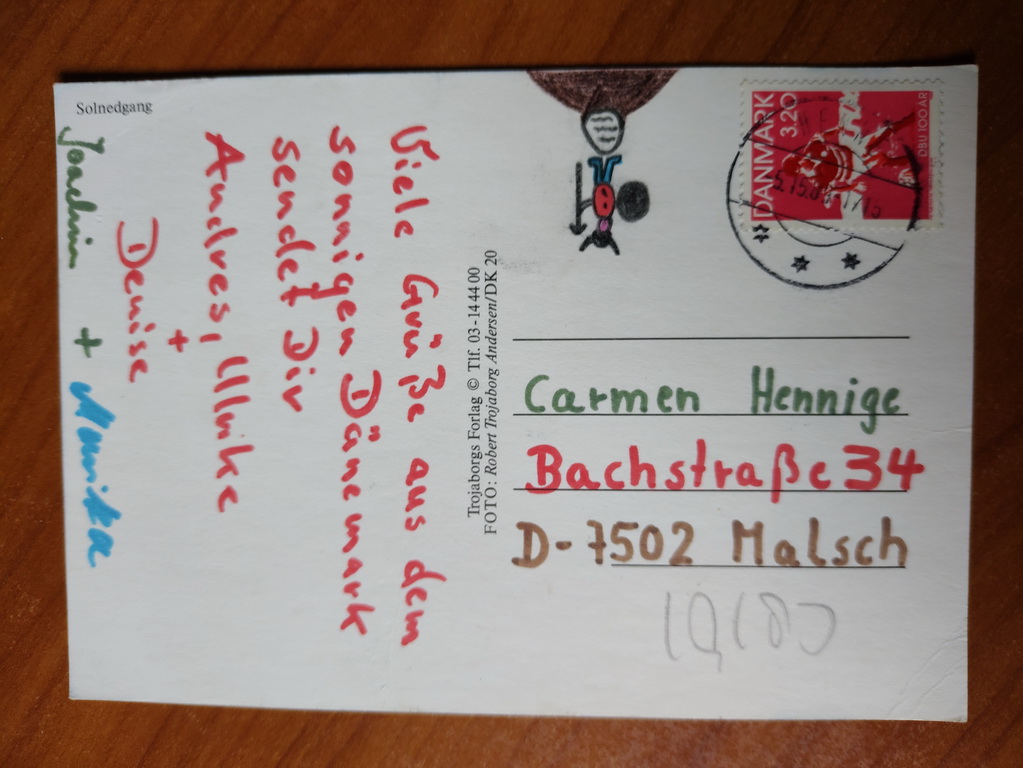 Solnedgang
Viele Grüße aus dem
sonnigen Dänemark
sendet Dir
Andres, Ulrike
+
Denise
Joachim + Monika
Trojaborgs Forlag © Tlf. 03-14 44 00
FOTO: Robert Trojaborg Andersen/DK 20
DANMARK 3.20
DBU 100 ÅR
Carmen Hennige
Bachstraße 34
D-7502 Malsch